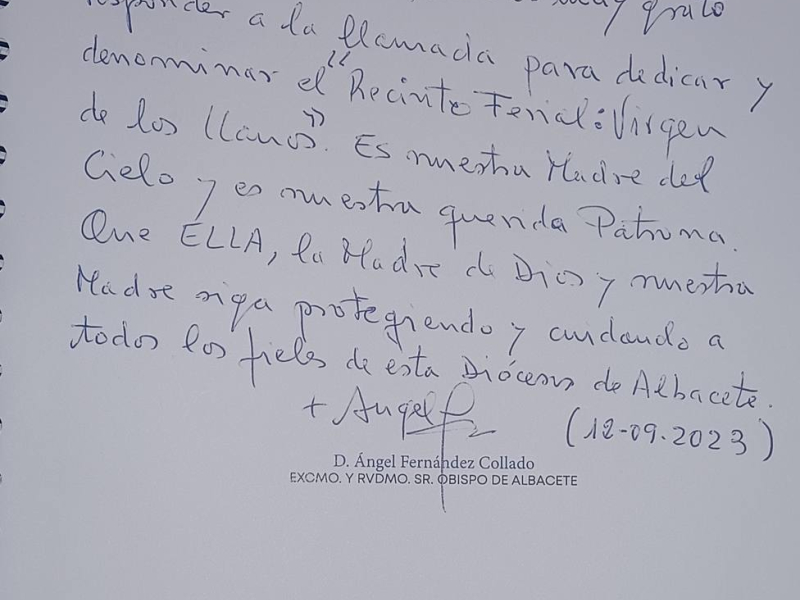 responder a la llamada para dedicar y
denominar el "Recinto Ferial: Virgen
de los Llanos". Es nuestra Madre del
Cielo y es nuestra querida Patrona.
Que ELLA, la Madre de Dios y nuestra
Madre siga protegiendo y cuidando a
todos los fieles de esta Diócesis de Albacete.
+ Angel F
(12-09.2023)
D. Ángel Fernández Collado
EXCMO. Y RVDMO. SR. OBISPO DE ALBACETE